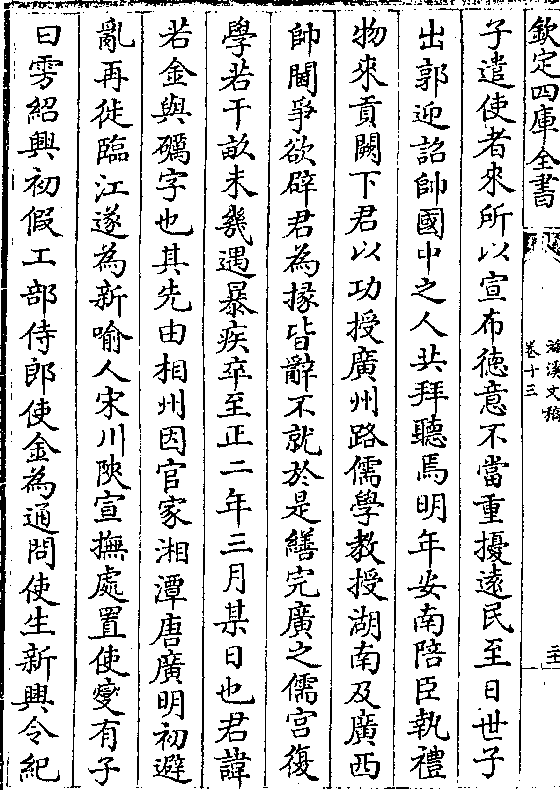 欽定四庫全書
卷十三
子遣使者來所以宣布徳意不當重擾遠民至日世子
出郭迎詔帥國中之人共拜聽焉明年安南陪臣執禮
物來貢闕下君以功授廣州路儒學教授湖南及廣西
帥閫爭欲辟君為掾皆辭不就於是繕完廣之儒宫復
學若干畝未幾遇暴疾卒至正二年三月某日也君諱
若金與礪字也其先由相州因官家湘潭唐廣明初避
亂再徙臨江遂為新喻人宋川陜宣撫處置使變有子
曰雱紹興初假工部侍郎使金為通問使生新興令紀